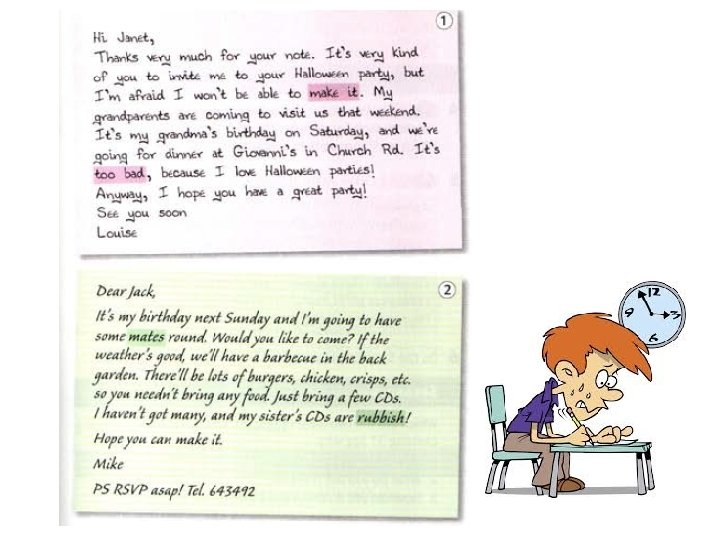 1
Hi Janet,
Thanks very much for your note. It's very kind
of you to invite me to your Halloween party, but
I'm afraid I won't be able to make it. My
grandparents are coming to visit us that weekend.
It's my grandma's birthday on Saturday, and we're
going for dinner at Giovanni's in Church Rd. It's
too bad, because I love Halloween parties!
Anyway, I hope you have a great party!
See you soon
Louise
2
Dear Jack,
It's my birthday next Sunday and I'm going to have
some mates round. Would you like to come? If the
weather's good, we'll have a barbecue in the back
garden. There'll be lots of burgers, chicken, crisps, etc.
so you needn't bring any food. Just bring a few CDs.
I haven't got many, and my sister's CDs are rubbish!
Hope you can make it.
Mike
PS RSVP asap! Tel. 643492
12
9 3
6